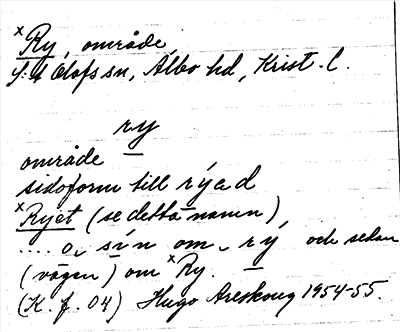 ˣRy, område,
S:t Olofs sn, Albo hd, Krist. l.
ry
område
sidoform till rýed
ˣRyet (se detta namn),
.... a sín om rý och sedan
(vägen) om ˣRy.
(K. f. 04) Hugo Areskoug 1954-55.